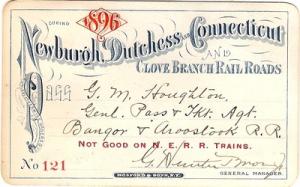 DURING 1896
Newburgh, Dutchess AND Connecticut
AND
CLOVE BRANCH RAIL ROADS
Pass
G. M. Houghton,
Genl. Pass & Tkt. Agt.
Bangor & Aroostook R. R.
NOT GOOD ON N. E. R. R. TRAINS.
No 121
GENERAL MANAGER.